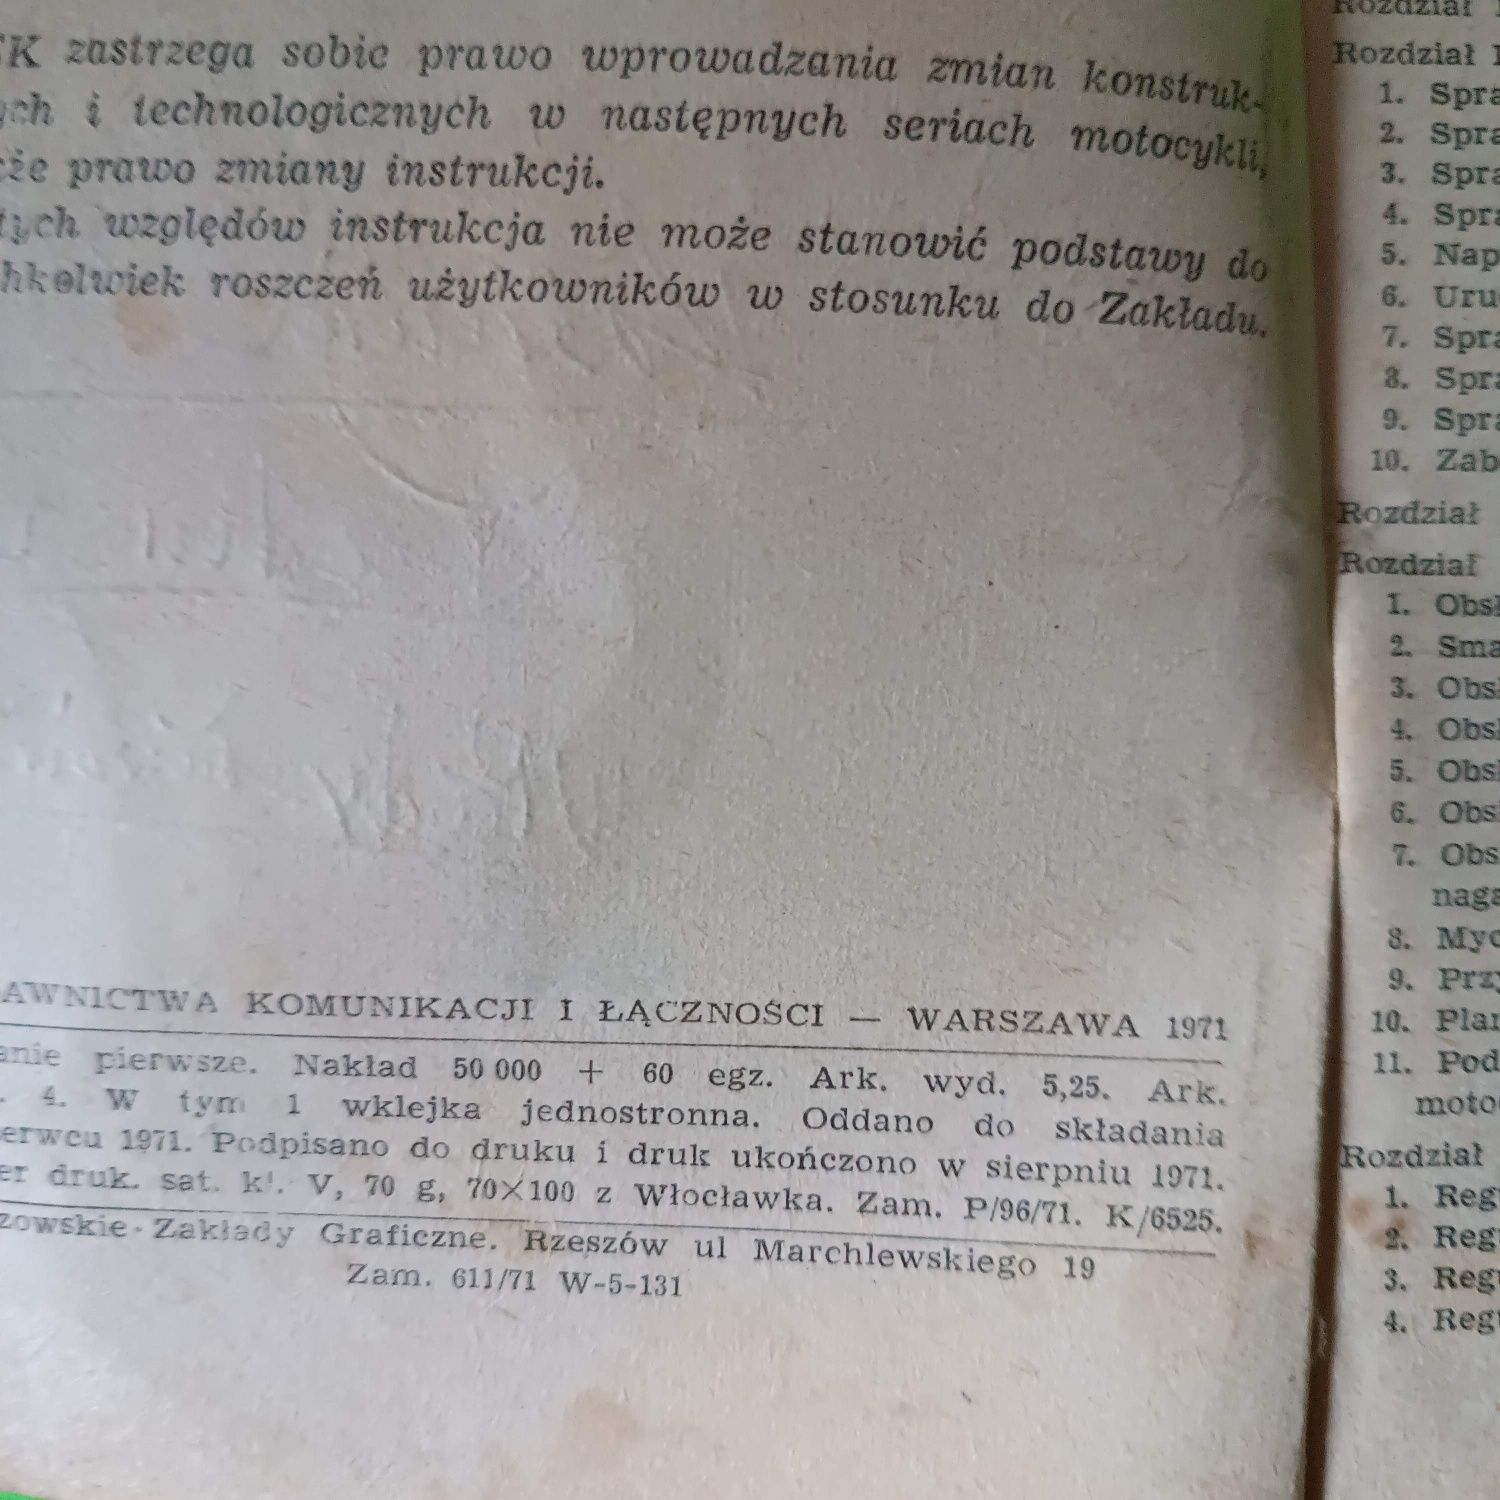 K zastrzega sobie prawo wprowadzania zmian konstruk-
ych i technologicznych w następnych seriach motocykli,
że prawo zmiany instrukcji.
tych względów instrukcja nie może stanowić podstawy do
hkolwiek roszczeń użytkowników w stosunku do Zakładu.
AWNICTWA KOMUNIKACJI I ŁĄCZNOŚCI — WARSZAWA 1971
anie pierwsze. Nakład 50 000 + 60 egz. Ark. wyd. 5,25. Ark.
. 4. W tym 1 wklejka jednostronna. Oddano do składania
erwcu 1971. Podpisano do druku i druk ukończono w sierpniu 1971.
er druk. sat. kl. V, 70 g, 70×100 z Włocławka. Zam. P/96/71. K/6525.
zowskie Zakłady Graficzne. Rzeszów ul Marchlewskiego 19
Zam. 611/71 W-5-131
Rozdział
Rozdział
1. Spra
2. Spra
3. Spra
4. Spra
5. Nap
6. Uru
7. Spra
8. Spra
9. Spra
10. Zab
Rozdział
Rozdział
1. Obsł
2. Sma
3. Obsł
4. Obsł
5. Obsł
6. Obsł
7. Obs
naga
8. Myc
9. Przy
10. Plan
11. Pod
moto
Rozdział
1. Regu
2. Regu
3. Regu
4. Regu